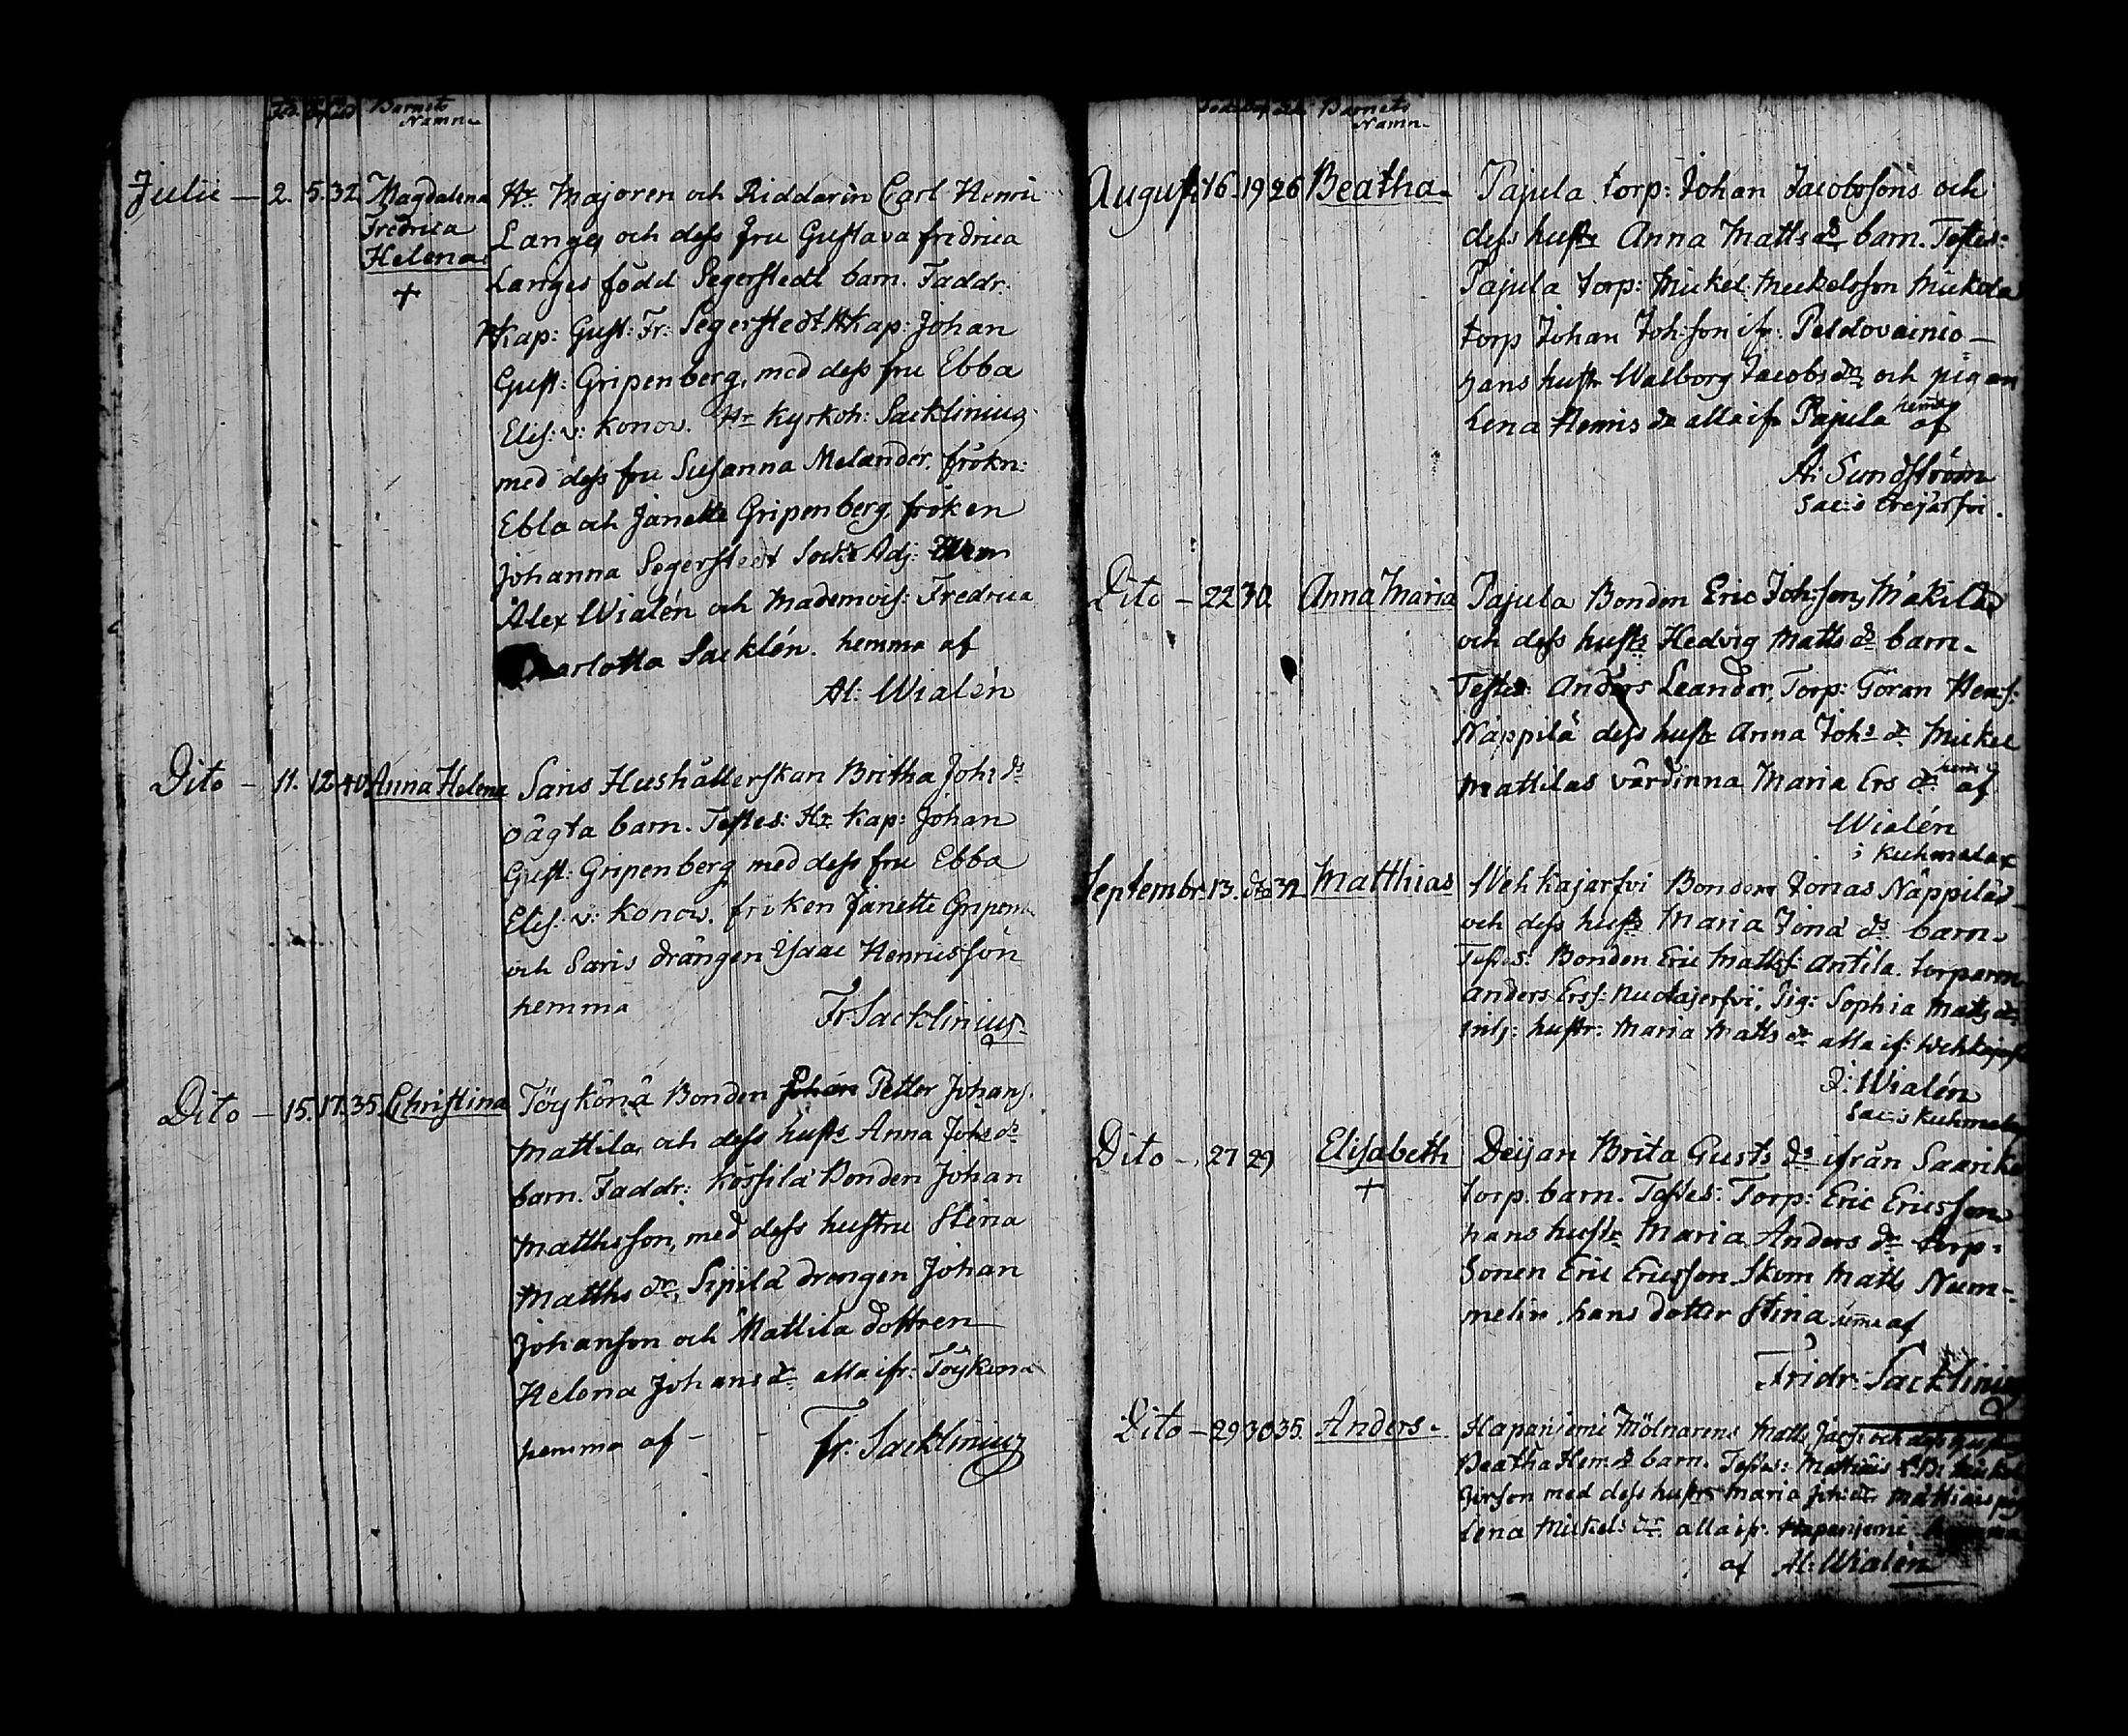 Barnets
Namn
Julii — 2. 5. 32. Magdalena
Fredrica
Helena.
+
Hr Majoren och Riddarin Carl Henric
Lange, och dess fru Gustava fredrica
Langes född Segerstedt barn. Faddr:
HKap: Gust: Fr: Segerstedt HKap: Johan
Gust: Gripenberg, med dess fru Ebba
Elis: v: Konow. Hr Kyrkoh: Sacklinius
med dess fru Susanna Melander. frökn:
Ebba och Janette Gripenberg, fröken
Johanna Segerstedt Sock: Adj:
Alex Wialén och Mademois: Fredrica
Charlotta Sacklén. hemma af
Al: Wialén
Dito — 11. 12. 40. Anna Helena
Saris Hushållerskan Britha Johs dr
oägta barn. Testes: Hr Kap: Johan
Gust: Gripenberg med dess fru Ebba
Elis: v: Konow. fröken Janette Gripenb
och Saris drängen Isaac Henricsson
hemma Fr Sacklinius
Dito — 15. 17. 35. Christina
Töykönä Bonden Petter Johans.
Mattila, och dess hustr Anna Johs dr
barn. Faddr: Kossila Bonden Johan
Matthsson, med dess hustru Stina
Matths dr, Sipilä drengen Johan
Johanson och Mattila dottren
Helena Johans dr alla ifr: Töykena
hemma af - - fr: Sacklinius
Barnets
Namn
August: 16. 19 26 Beatha.
Pajula torp: Johan Jacobssons och
dess hustr Anna Matts dr barn. Testes:
Pajula torp: Mickel Mickelsson Mickola
torp Johan Johsson ifr: Peldovainio —
hans hustr Walborg Jacobs dr och pigan
Lena Henris dr alla ifr Pajula hema af
A: Sundström
Sac: i Ereijärfvi.
Dito — 22 30. Anna Maria
Pajula Bonden Eric Johsson Mäkiläs
och dess hustr Hedvig Matts dr barn.
Testes: Anders Leander, Torp: Göran Hens:
Näppilä dess hustr Anna Johs dr Mickel
Mattilas värdinna Maria Ers dr hema af
Wialén
i Kuhmalax
Septembr. 13. dito 32 Matthias
Wehkajarfvi Bonden Jonas Näppiläs
och dess hustr Maria Jona dr barn.
Testes: Bonden Eric Mattss: Antila. torparen
Anders Erss: Nuolajerfvi, Pig: Sophia Matts dr
inhs: hustr: Maria Matts dr alla if: Wehkajerf
J: Wialén
Sac: i Kuhmalax
Dito — 27 29 Elisabeth
+
Deijan Brita Gusts dr ifrån Saarike
torp. barn. Testes: Torp: Eric Ericsson
hans hustr Maria Anders dr torp:
Sonen Eric Ericsson Skom Matts Num-
melin hans dotter Stina hema af
Fridr: Sacklinius
Dito — 29 30 35. Anders.
Hapaniemi Mölnarens Matts Jacss och dess hustru
Beatha Hen dr barn. Testes: Mattiais
Jirson med dess hustr Maria Joh: dr Mattiais pig
Lena Mickels dr alla ifr: Hapaniemi
af Al: Wialén